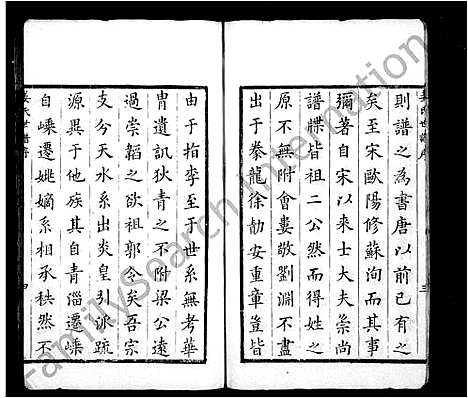 姜氏世譜序
則譜之為書唐以前已有之
矣至宋歐陽修蘇洵而其事
彌著自宋以來士大夫崇尚
譜牒皆祖二公然而得姓之
原不無附會婁敬劉淵不盡
出于豢龍徐勣安重章豈皆
三
由于指李至于世系無考華
胄遺譏狄青之不附梁公遠
過崇韜之欲祖郭令矣吾宗
支分天水系出炎皇引派疏
源異于他族其自青淄遷嵊
自嵊遷姚嫡系相承秩然不
姜氏世譜序
四
FamilySearch International